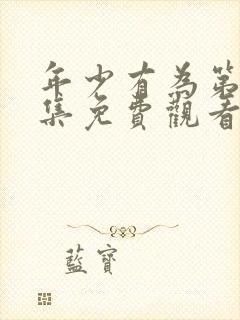 年少有為第
集免費觀看
藍寶